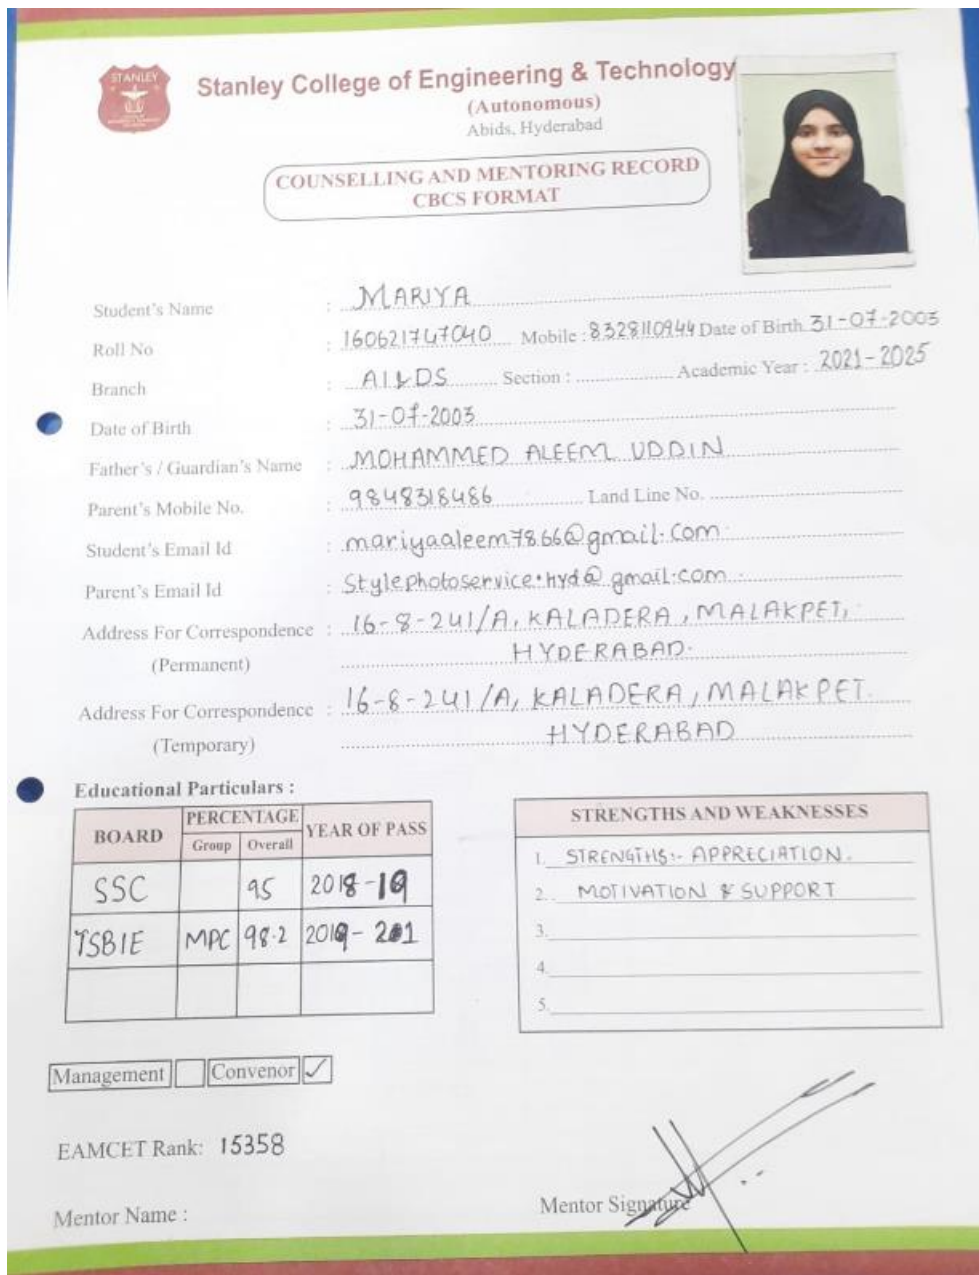 STANLEY
Stanley College of Engineering & Technology
(Autonomous)
Abids, Hyderabad
COUNSELLING AND MENTORING RECORD
CBCS FORMAT
Student's Name : MARIYA
Roll No : 160621747040 Mobile : 8328110944 Date of Birth 31-07-2003
Branch : AI&DS Section : Academic Year : 2021-2025
Date of Birth : 31-07-2003
Father's / Guardian's Name : MOHAMMED ALEEM UDDIN
Parent's Mobile No. : 9848318486 Land Line No.
Student's Email Id : mariyaaleem7866@gmail.com
Parent's Email Id : Stylephotoservice.hyd@gmail.com
Address For Correspondence : 16-8-241/A, KALADERA, MALAKPET,
(Permanent) HYDERABAD.
Address For Correspondence : 16-8-241/A, KALADERA, MALAKPET.
(Temporary) HYDERABAD
Educational Particulars :
BOARD PERCENTAGE YEAR OF PASS
Group Overall
SSC 95 2018-19
TSBIE MPC 98.2 2019-201
STRENGTHS AND WEAKNESSES
1. STRENGTHS:- APPRECIATION.
2. MOTIVATION & SUPPORT
3.
4.
5.
Management Convenor ✓
EAMCET Rank: 15358
Mentor Name :
Mentor Signature